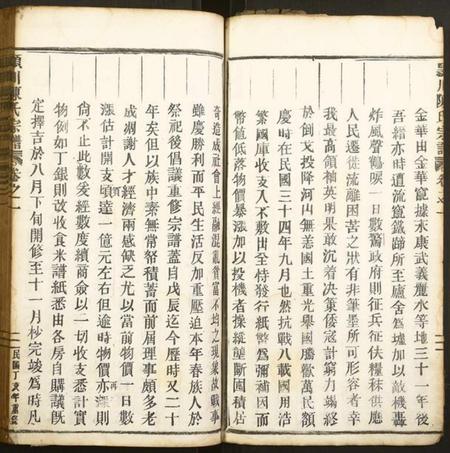 金華由金華竄據永康武義麗水等地三十一年後
吾縉亦時遭流竄鐵蹄所至廬舍為墟加以敵機轟
炸風聲鶴唳一日數驚政府則征兵征伕糧秣供應
人民遷徙流離困苦之狀有非筆墨所可形容者幸
我最高領袖英明果敢沉着決策倭寇計窮力竭終
於倒戈投降河山無恙國土重光舉國騰歡萬民額
慶時在民國三十四年九月也然抗戰八載國用浩
繁國庫收支入不敷出全恃發行紙幣為彌補因而
幣值低落物價暴漲加以投機者操縱壟斷囤積居
奇造成社會上經濟混亂貧富不均之現象故戰事
雖慶勝利而平民生活反加重壓迫本年春族人於
祭祀後倡議重修宗譜蓋自戊辰迄今歷時又二十
年矣但以族中素無常帑積蓄而前屆理事頗多老
成凋謝人才經濟兩感缺乏尤以當前物價一日數
漲估計開支頃達一億元左右但逾時物價亦漲則
尚不止此數爰經數度續商僉以一切收支悉計實
物例如丁銀則改收食米譜紙悉由各房自購議既
定擇吉於八月下旬開修至十一月杪完竣為時凡
潁川陳氏宗譜
卷之一
民國丁亥年重修
潁川陳氏宗譜